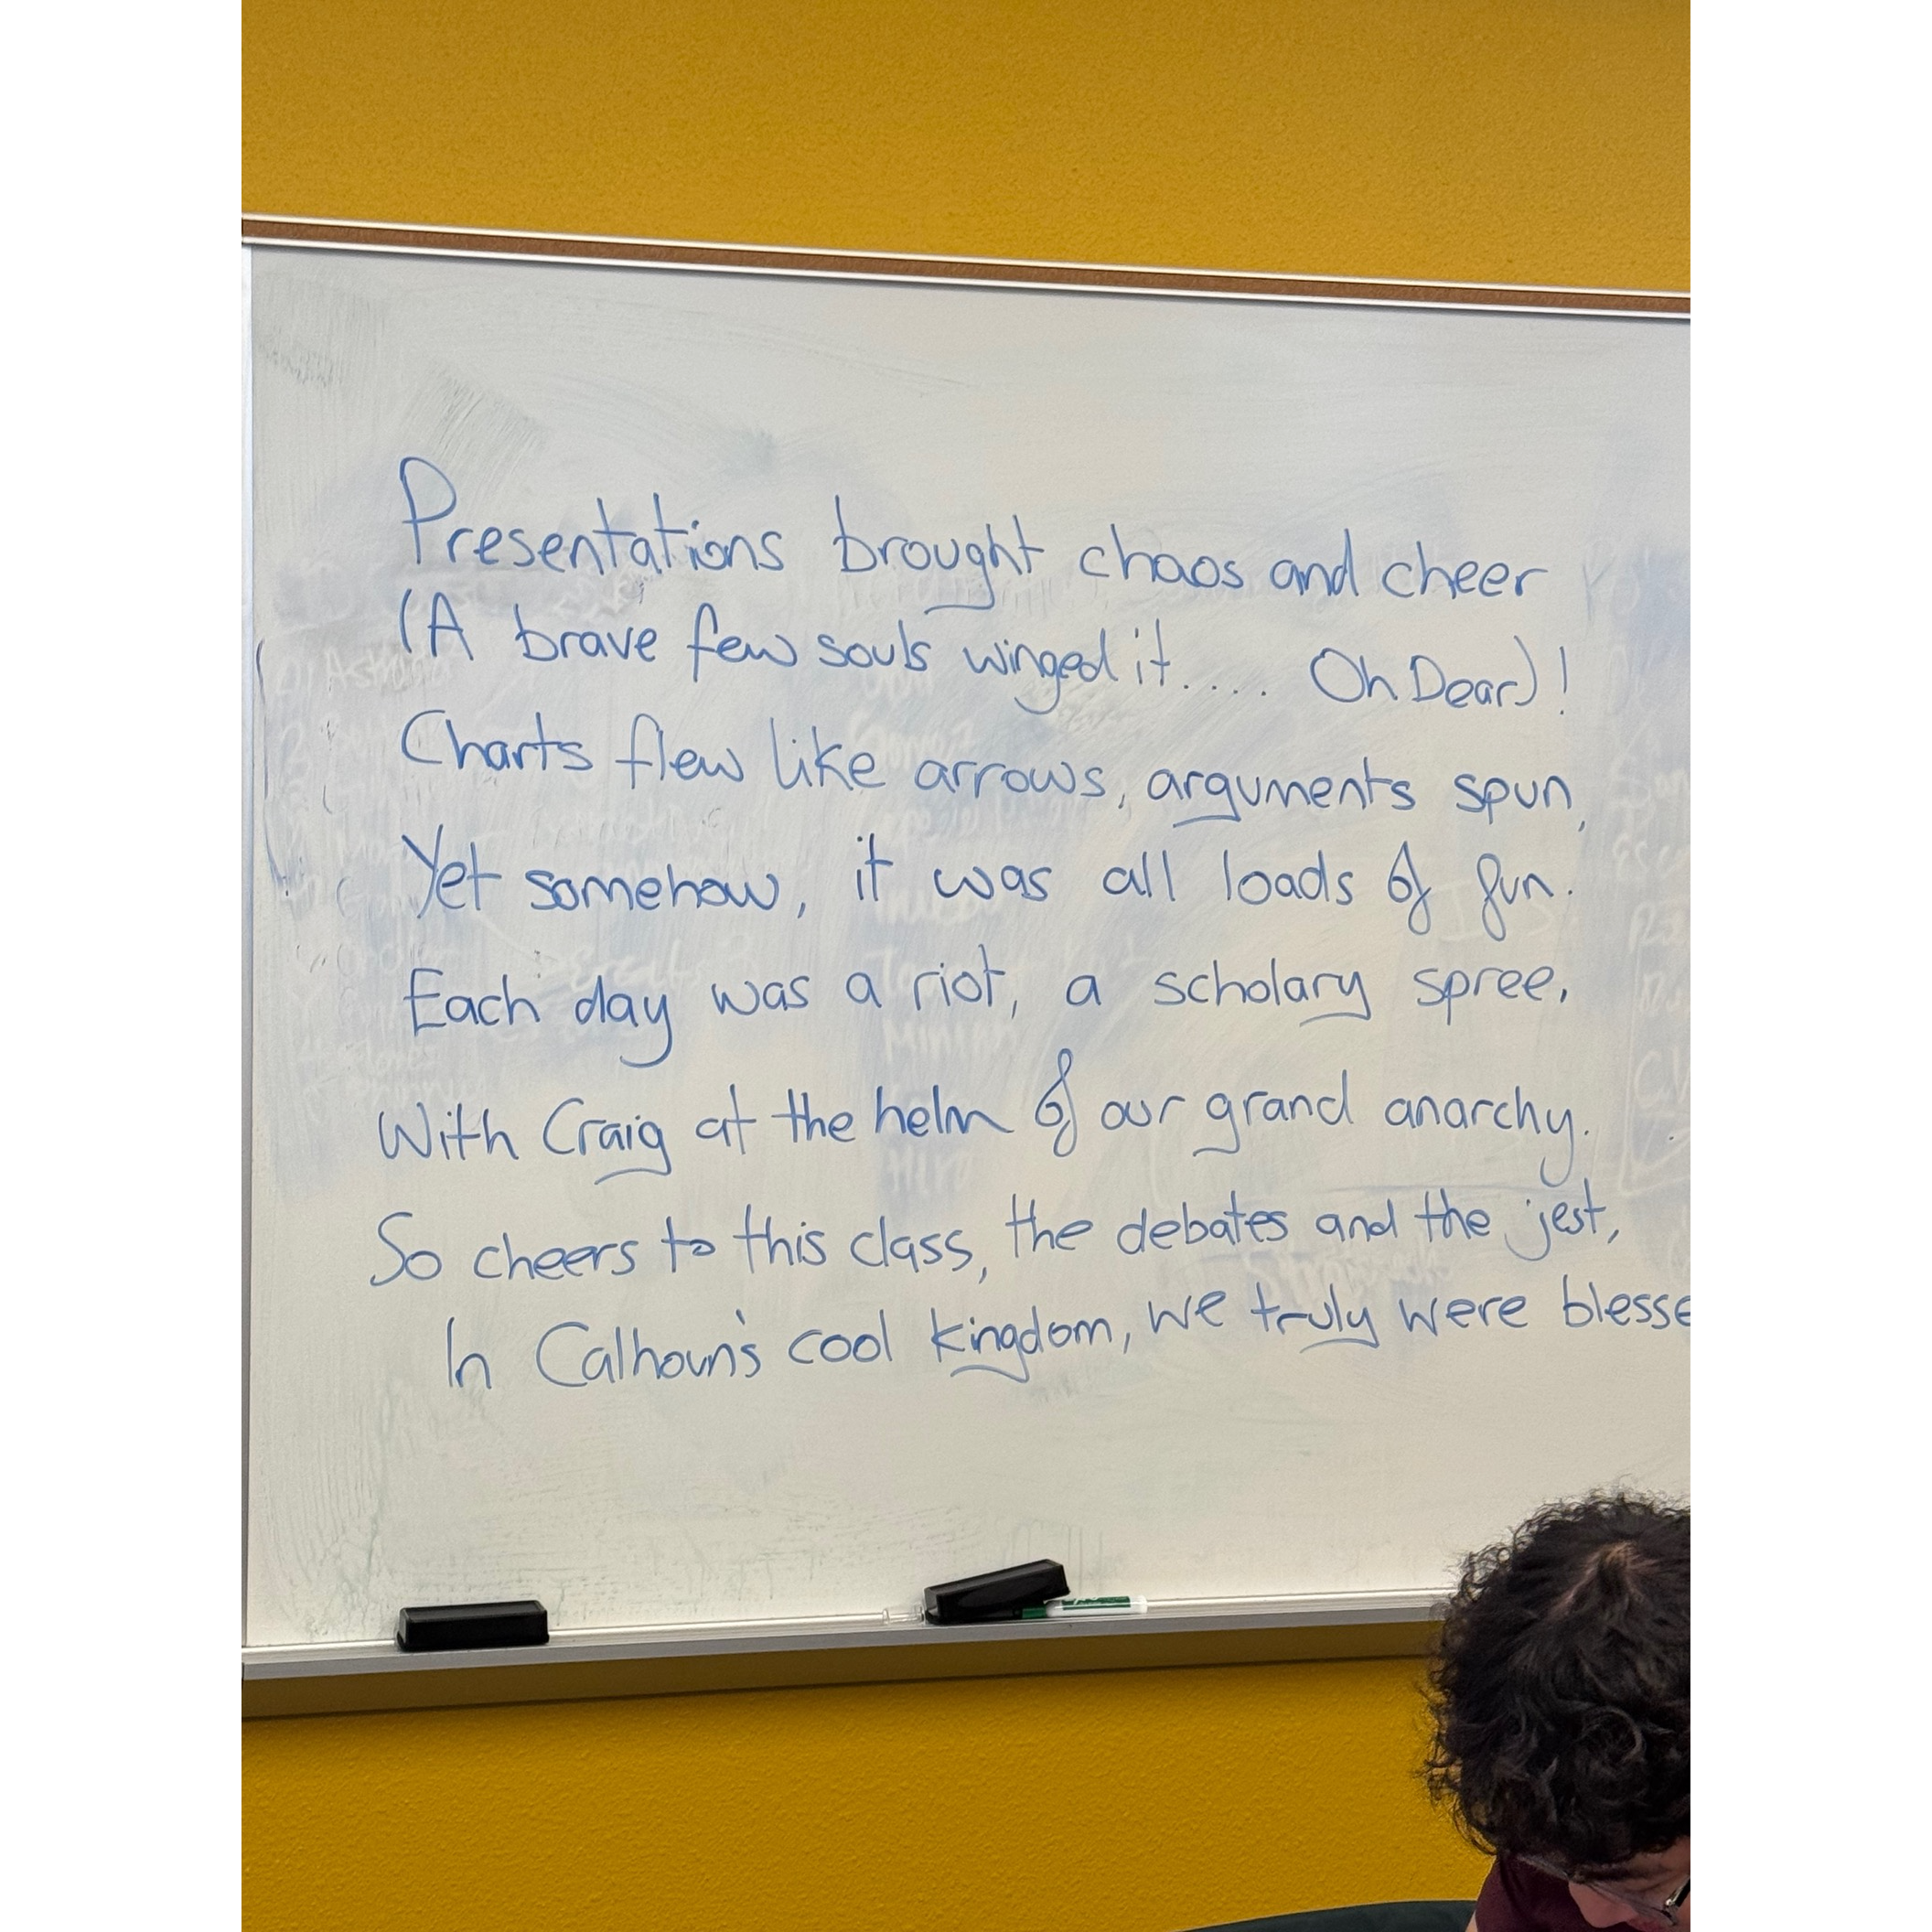 Presentations brought chaos and cheer
(A brave few souls winged it.... Oh Dear)!
Charts flew like arrows, arguments spun,
Yet somehow, it was all loads of fun.
Each day was a riot, a scholary spree.
With Craig at the helm of our grand anarchy.
So cheers to this class, the debates and the jest,
In Calhoun's cool kingdom, we truly were blesse